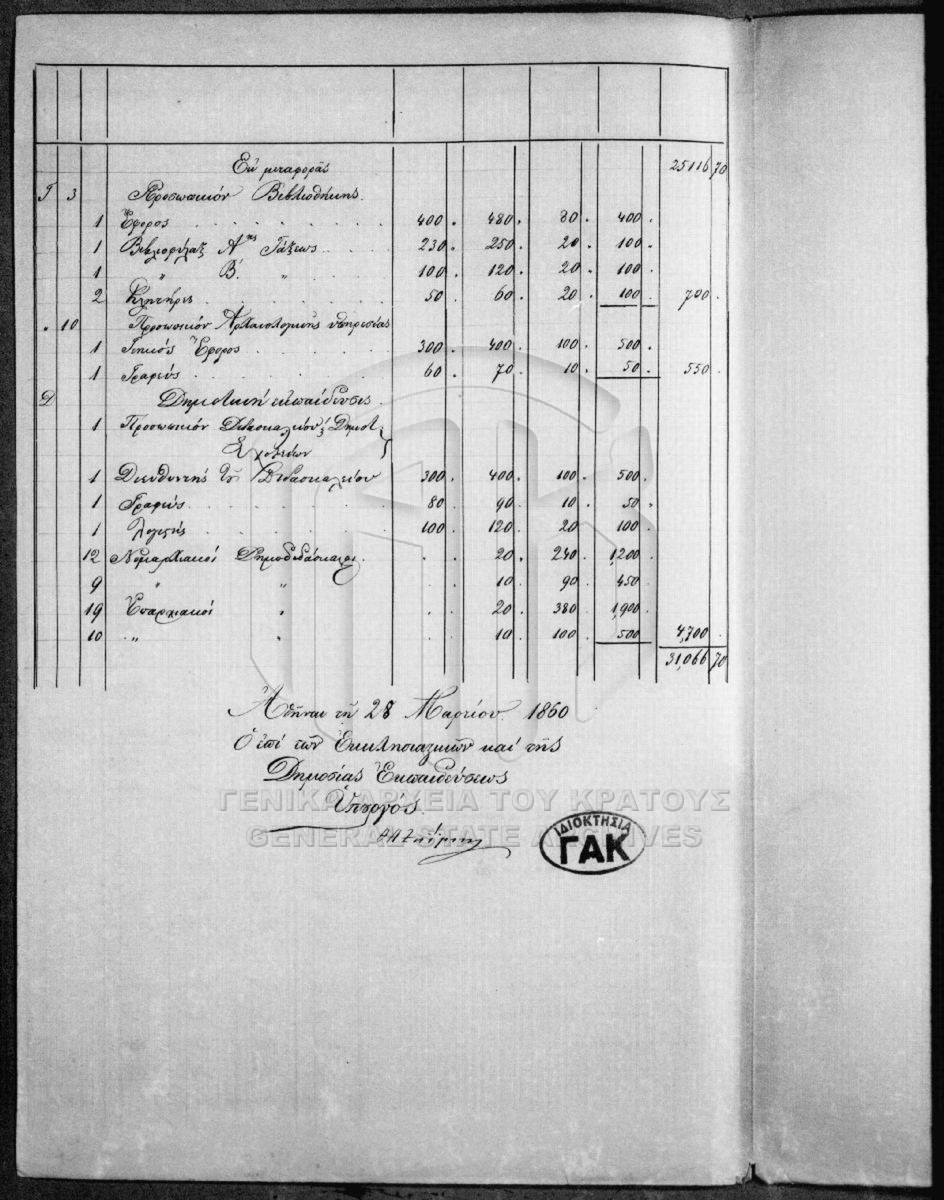 Ἐκ μεταφορᾶς 25116 70
Γ 3 Προσωπικόν Βιβλιοθήκης.
1 Ἔφορος 400 . 480 . 80 . 400 .
1 Βιβλιοφύλαξ Α.ης Τάξεως 230 . 250 . 20 . 100 .
1 " Β. " 100 . 120 . 20 . 100 .
2 Κλητῆρες 50 . 60 . 20 . 100 . 700 .
" 10 Προσωπικόν Ἀρχαιολογικῆς ὑπηρεσίας
1 Γενικός Ἔφορος 300 . 400 . 100 . 500 .
1 Γραφεύς 60 . 70 . 10 . 50 . 550 .
Δ Δημοτική ἐκπαίδευσις.
1 Προσωπικόν Διδασκαλείου καί Δημοτ.
Σχολείων
1 Διευθυντής τοῦ Διδασκαλείου 300 . 400 . 100 . 500 .
1 Γραφεύς 80 . 90 . 10 . 50 .
1 100 . 120 . 20 . 100 .
12 Νομαρχιακοί Δημοδιδάσκαλοι . . 20 . 240 . 1,200 .
9 " " . . 10 . 90 . 450 .
19 Ἐπαρχιακοί " . . 20 . 380 . 1,900 .
10 " " . . 10 . 100 . 500 4,700 .
31,066 70
Ἀθῆναι τῇ 28 Μαρτίου 1860
Ὁ ἐπί τῶν Ἐκκλησιαστικῶν καί τῆς
Δημοσίας Ἐκπαιδεύσεως
Ὑπουργός
ΓΕΝΙΚΑ ΑΡΧΕΙΑ ΤΟΥ ΚΡΑΤΟΥΣ
GENERAL STATE ARCHIVES
ΙΔΙΟΚΤΗΣΙΑ
ΓΑΚ